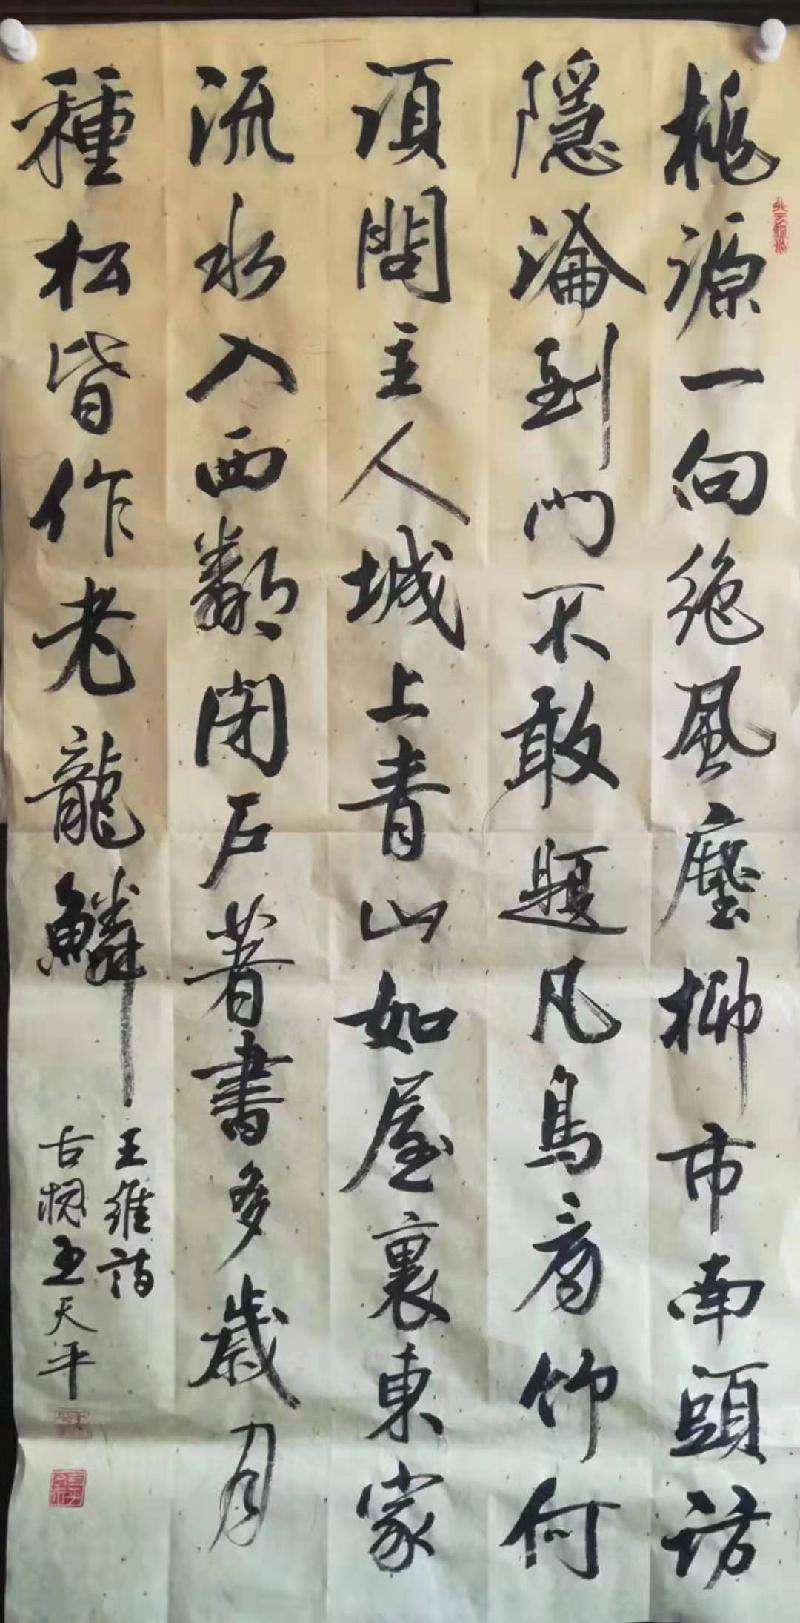 桃源一向绝風塵柳市南頭訪
隱淪到門不敢題凡鳥看竹何
須問主人城上青山如屋裏東家
流水入西鄰閉戶著書多歲月
種松皆作老龍鱗
王維詩
古槐王天平